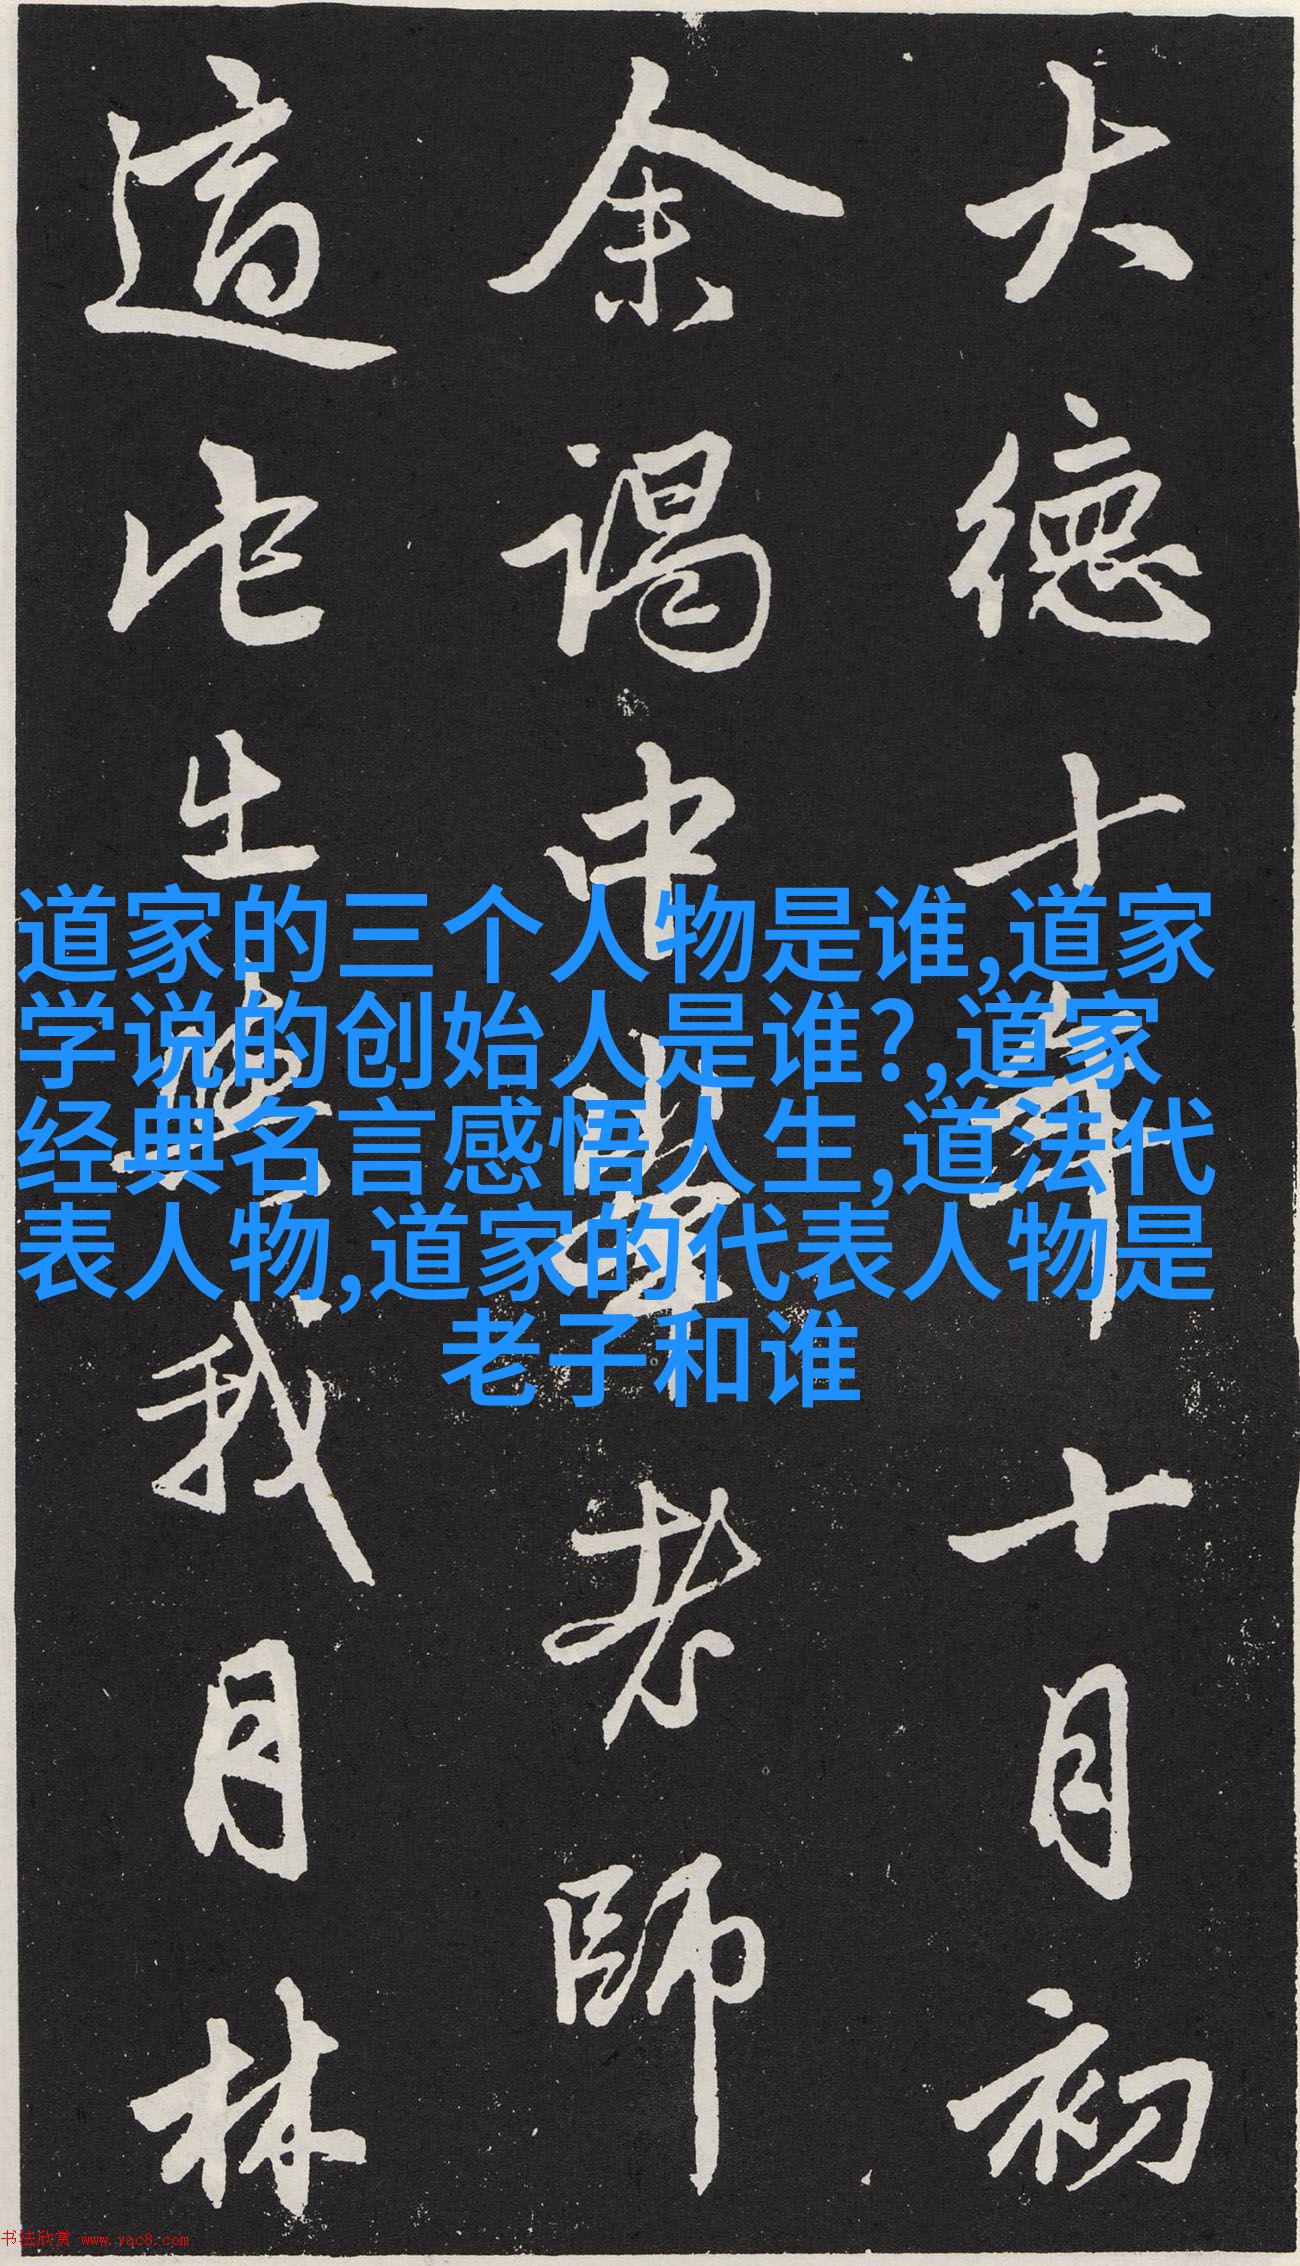 道家的三个人物是谁,道家
学说的创始人是谁?,道家
经典名言感悟人生,道法代
表人物,道家的代表人物是
老子和谁
大德十年十月初
余謁中峯老師
適此生無我月林
书法欣赏 www.yac8.com